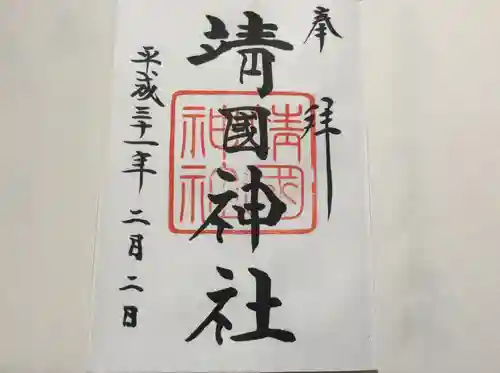 奉拝
靖國神社
靖國神社
平成三十一年二月二日